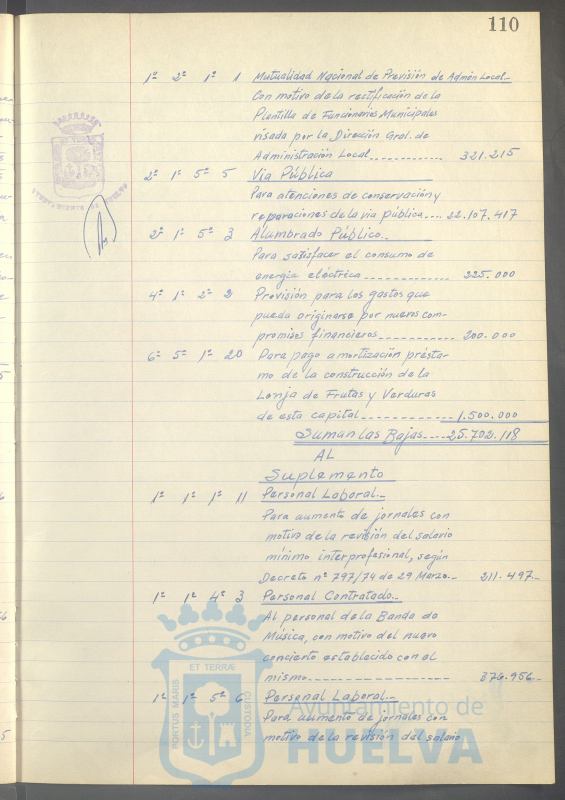 110
1º 2º 1º 1 Mutualidad Nacional de Previsión de Admón Local.-
Con motivo de la rectificación de la
Plantilla de Funcionarios Municipales
visada por la Dirección Gral. de
Administración Local............ 321.215
2º 1º 5º 5 Via Pública
Para atenciones de conservación y
reparaciones de la via pública.... 22.107.417
2º 1º 5º 3 Alumbrado Público..
Para satisfacer el consumo de
energia eléctrica-------------- 225.000
4º 1º 2º 2 Provisión para los gastos que
pueda originarse por nuevos com-
promisos financieros.----------- 200.000
6º 5º 1º 20 Para pago amortización présta-
mo de la construcción de la
Lonja de Frutas y Verduras
de esta capital-------------- 1.500.000
Suman las Bajas....25.702.118
AL
Suplemento
1º 1º 1º 11 Personal Laboral.-
Para aumento de jornales con
motivo de la revisión del salario
mínimo interprofesional, según
Decreto nº 797/74 de 29 Marzo.- 211.497.-
1º 1º 4º 3 Personal Contratado.-
Al personal de la Banda de
Música, con motivo del nuevo
concierto establecido con el
mismo.------------------- 876.956.-
1º 1º 5º 6 Personal Laboral.-
Para aumento de jornales con
motivo de la revisión del salario
ET TERRÆ
PORTUS MARIS
CUSTODIA
Ayuntamiento de
HUELVA